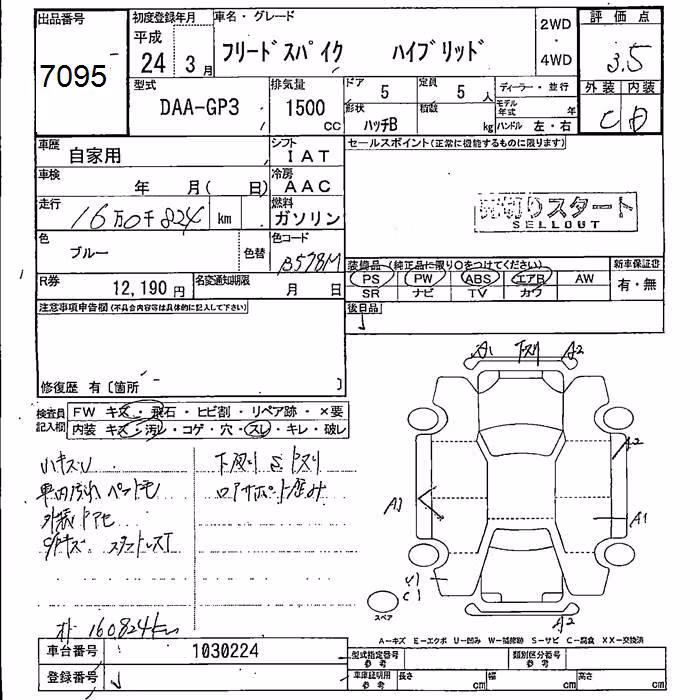 出品番号
7095
初度登録年月
平成
24 3 月
車名・グレード
フリードスパイク ハイブリッド
2WD
・
4WD
評価点
3.5
型式
DAA-GP3
排気量
1500
cc
ドア 5
定員 5 人
形状
ハッチB
積数
kg
ディーラー・並行
モデル
年式 年
ハンドル 左・右
外装 内装
C D
車歴
自家用
車検
年 月( 日)
走行
16万0千824 km
シフト
IAT
冷房
AAC
燃料
ガソリン
色
ブルー
色替
色コード
B578M
R券
12,190 円
名変通知期限
月 日
セールスポイント(正常に機能するものに限ります)
売切りスタート
SELLOUT
装備品(純正品に限り○をつけてください)
PS PW ABS エアB AW
SR ナビ TV カワ
新車保証書
有・無
後日品
注意事項申告欄(不具合内容等は具体的に記入して下さい)
修復歴 有〔箇所 〕
検査員
記入欄
FW キズ・飛石・ヒビ割・リペア跡・×要
内装 キズ・汚レ・コゲ・穴・スレ・キレ・破レ
小キズU
車内汚れ
下廻りSドスリ
ロアサポート歪み
外装
160,824km
A1 下スリ A2
A2
A3
A1
U1
C1
A2
スペア
A-キズ E-エクボ U-凹み W-補修跡 S-サビ C-腐食 XX-交換済
車台番号
1030224
登録番号
型式指定番号
参考
類別区分番号
参考
車庫証明用
参考
長さ cm
幅 cm
高さ cm